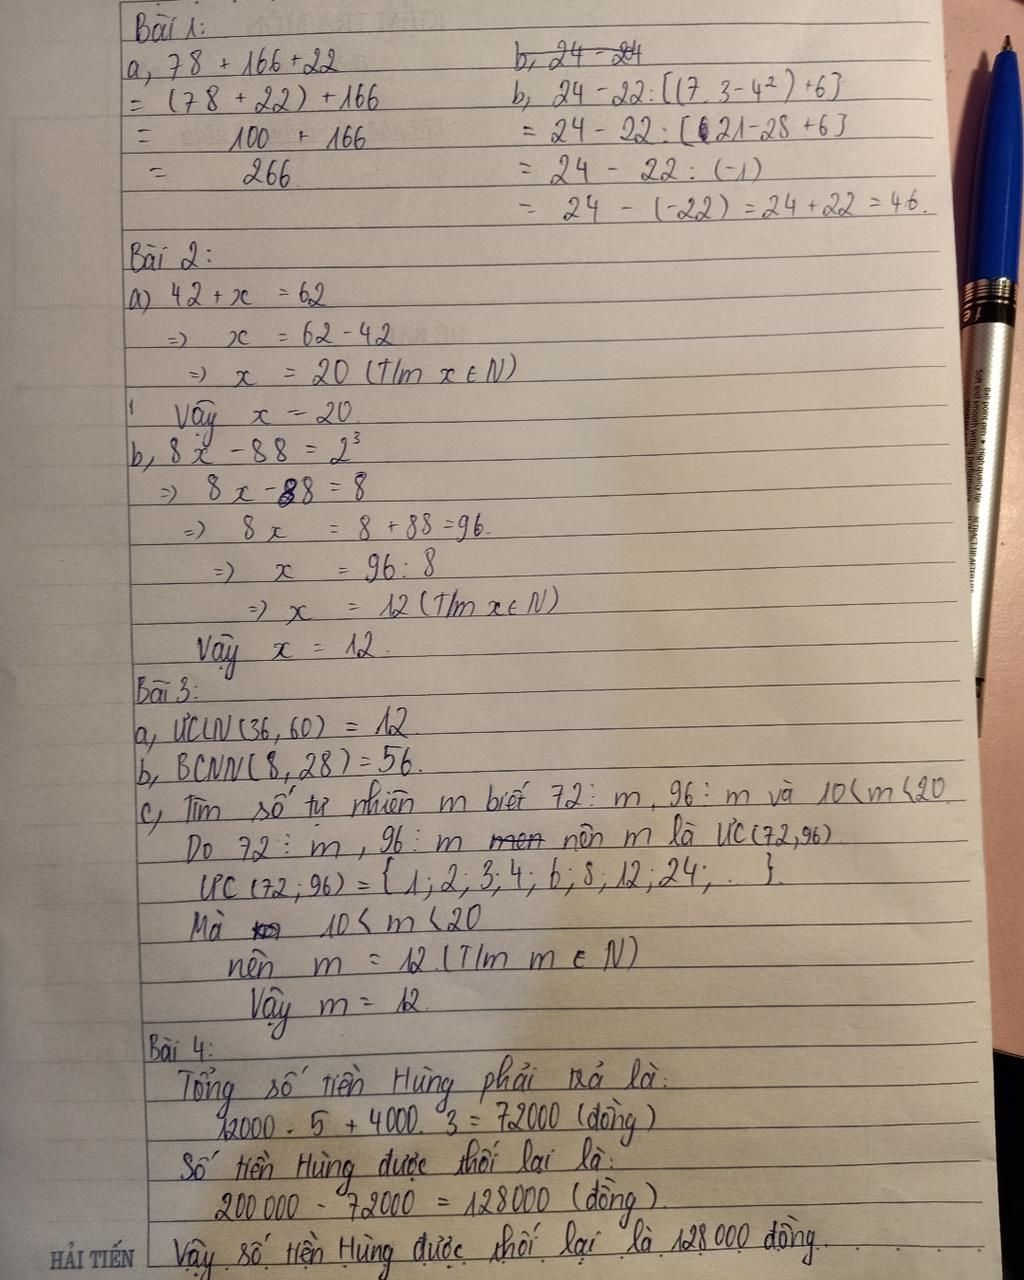 Bài 1:
a, 78 + 166 + 22
= (78 + 22) + 166
= 100 + 166
= 266
b, 24 - 24
b, 24 - 22 : [(7. 3 - 4²) + 6]
= 24 - 22 : [21 - 28 + 6]
= 24 - 22 : (-1)
= 24 - (-22) = 24 + 22 = 46.
Bài 2:
a) 42 + x = 62
=> x = 62 - 42
=> x = 20 (T/m x ∈ N)
Vậy x = 20.
b, 8x - 88 = 2³
=> 8x - 88 = 8
=> 8x = 8 + 88 = 96.
=> x = 96 : 8
=> x = 12 (T/m x ∈ N)
Vậy x = 12.
Bài 3:
a, ƯCLN(36, 60) = 12
b, BCNN(8, 28) = 56.
c, Tìm số tự nhiên m biết 72 ⋮ m, 96 ⋮ m và 10 < m < 20.
Do 72 ⋮ m, 96 ⋮ m nên m là ƯC(72, 96)
ƯC(72; 96) = {1; 2; 3; 4; 6; 8; 12; 24; ...}.
Mà 10 < m < 20
nên m = 12. (T/m m ∈ N)
Vậy m = 12.
Bài 4:
Tổng số tiền Hùng phải trả là:
12000 . 5 + 4000. 3 = 72000 (đồng)
Số tiền Hùng được thối lại là:
200 000 - 72000 = 128000 (đồng).
Vậy số tiền Hùng được thối lại là 128 000 đồng.
HẢI TIẾN